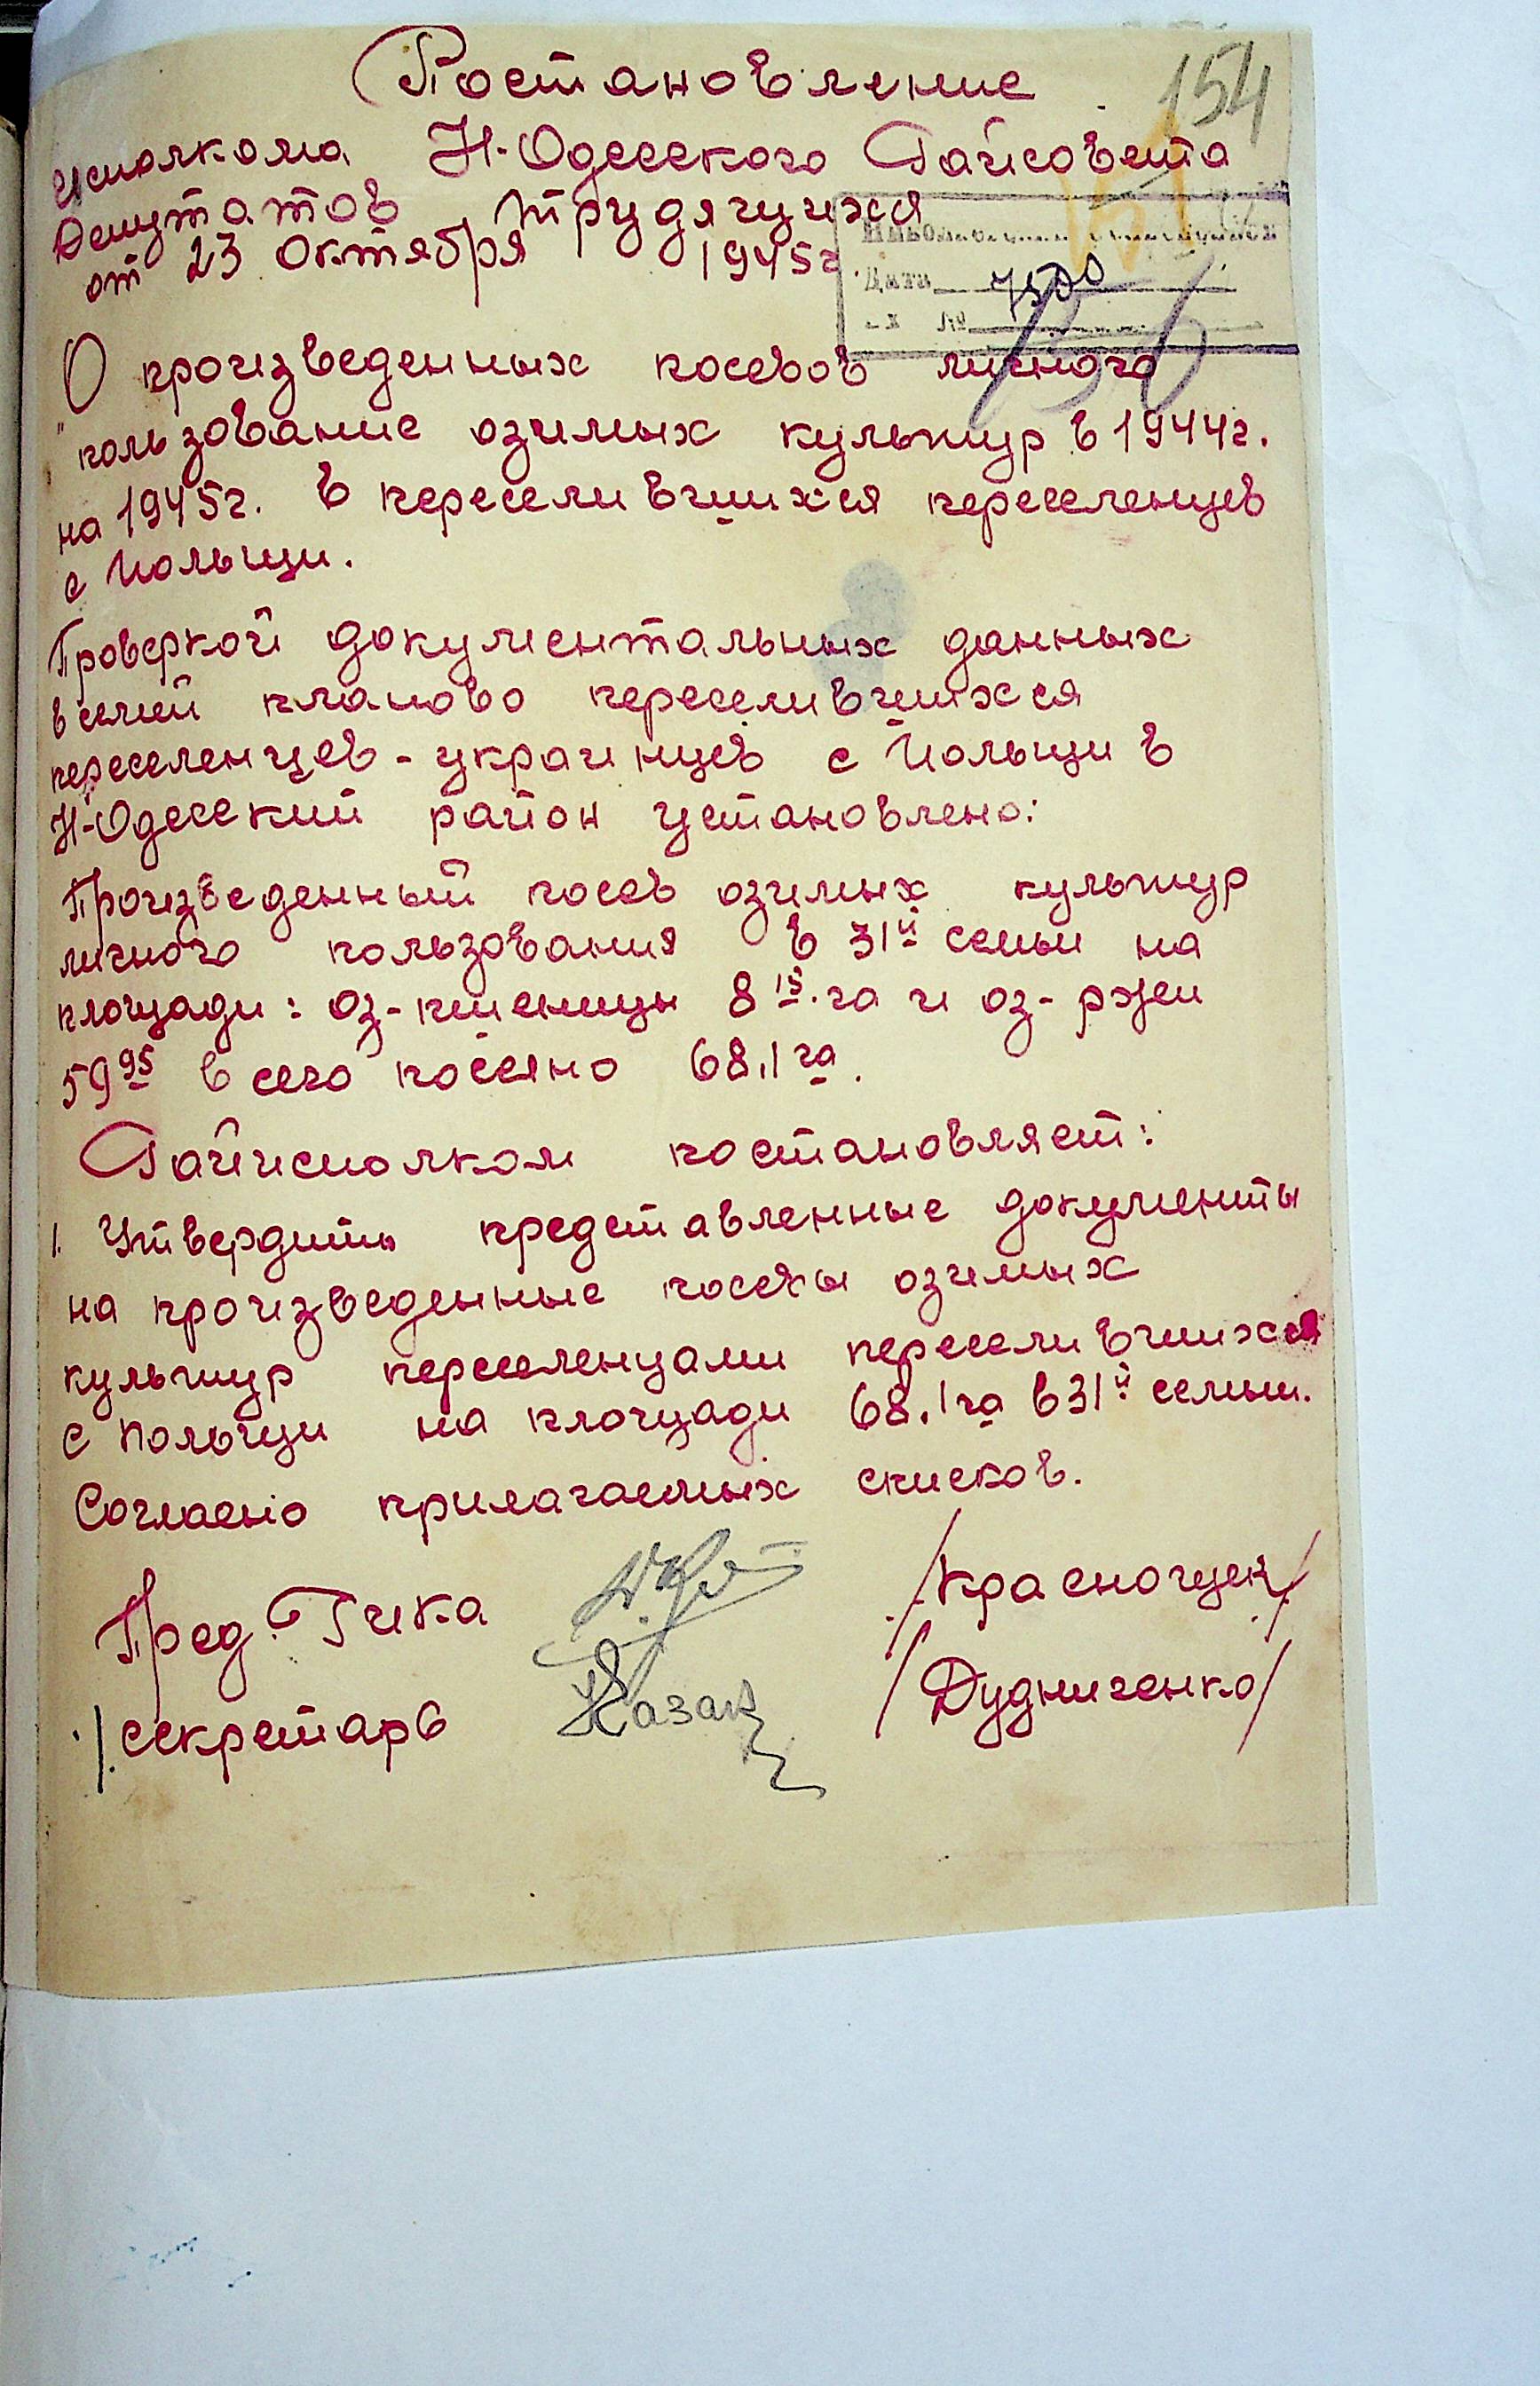 Постановление
154
Исполкома Н-Одесского Райсовета
Депутатов трудящихся
от 23 октября 1945г
Дата 7500
О произведенных посевов личного
пользование озимых культур в 1944г.
на 1945г. в переселившихся переселенцев
с Польщи.
Проверкой документальных данных
в семей планово переселившихся
переселенцев - украинцев с Польщи в
Н-Одесский район установлено:
Произведенный посев озимых культур
личного пользования в 31й семьи на
площади: оз-пшеницы 8 15 га и оз-ржи
59 95 всего посеяно 68,1 га.
Райисполком постановляет:
1. Утвердить представленные документы
на произведенные посевы озимых
культур переселенцами переселившихся
с Польщи на площади 68,1 га в 31й семьи.
Согласно прилагаемых списков.
Пред. Рика /Красношек/
/ секретарь Казак /Дудниченко/